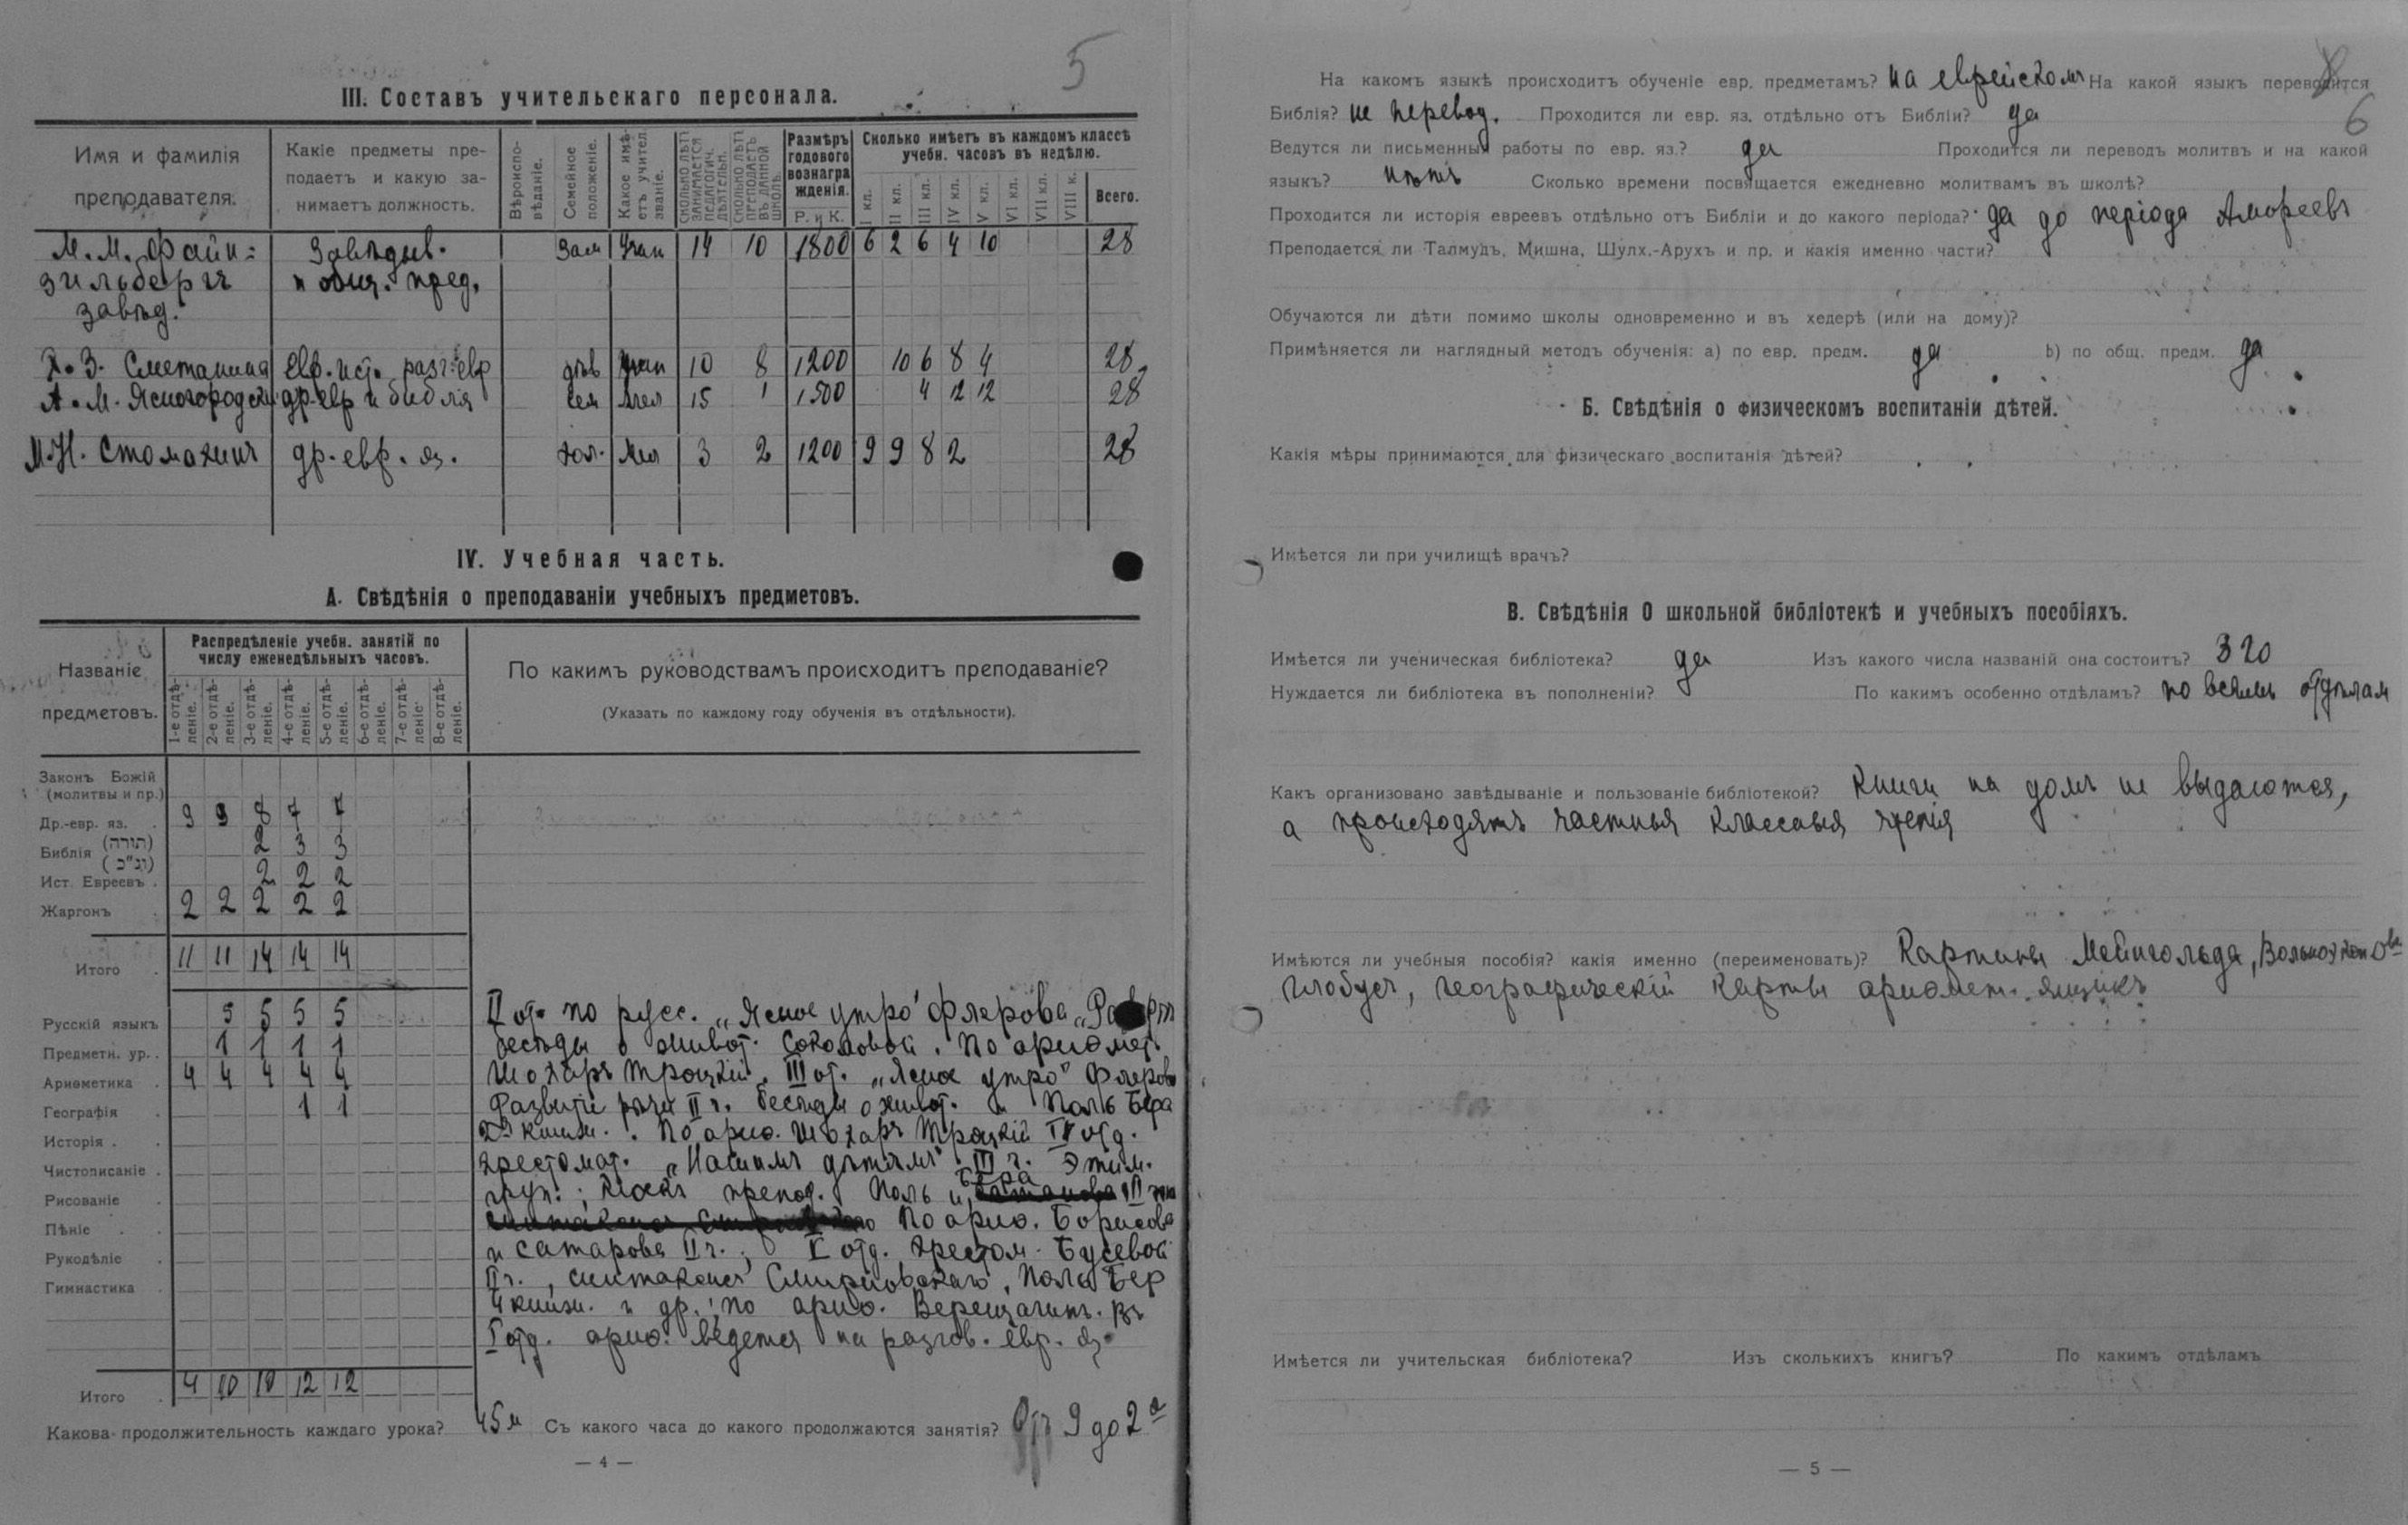 5
III. Составъ учительскаго персонала.
Имя и фамилія преподавателя.
Какіе предметы преподаетъ и какую занимаетъ должность.
Вѣроисповѣданіе.
Семейное положеніе.
Какое имѣетъ учител. званіе.
Сколько лѣтъ занимается педагогич. дѣятельн.
Сколько лѣтъ преподаетъ въ данной школѣ.
Размѣръ годового вознагражденія.
Р. и К.
Сколько имѣетъ въ каждомъ классѣ учебн. часовъ въ недѣлю.
I кл. II кл. III кл. IV кл. V кл. VI кл. VII кл. VIII к. Всего.
М. М. Файн- Завѣдыв. Зам 14 10 1800 6 2 6 4 10 28
зильбергъ и общ. пред.
завѣд.
Х. З. Сметанная евр. ист. разг. евр дѣв 10 8 1200 10 6 8 4 28
А. М. Ясногородск др. евр и библія 15 1 1500 4 12 12 28
М. Н. Стомахинъ др. евр. яз. хол. 3 2 1200 9 9 8 2 28
IV. Учебная часть.
А. Свѣдѣнія о преподаваніи учебныхъ предметовъ.
Названіе предметовъ.
Распредѣленіе учебн. занятій по числу еженедѣльныхъ часовъ.
1-е отдѣленіе. 2-е отдѣленіе. 3-е отдѣленіе. 4-е отдѣленіе. 5-е отдѣленіе. 6-е отдѣленіе. 7-е отдѣленіе. 8-е отдѣленіе.
По какимъ руководствамъ происходитъ преподаваніе?
(Указать по каждому году обученія въ отдѣльности).
Законъ Божій
(молитвы и пр.)
Др.-евр. яз. 9 9 8 7 7
Библія (תורה) 2 3 3
(נ״כ)
Ист. Евреевъ . 2 2 2
Жаргонъ 2 2 2 2 2
Итого . 11 11 14 14 14
Русскій языкъ 5 5 5 5
Предметн. ур. . 1 1 1 1
Ариѳметика . 4 4 4 4 4
Географія . 1 1
Исторія . .
Чистописаніе .
Рисованіе .
Пѣніе . .
Рукодѣліе .
Гимнастика .
Итого . 4 10 10 12 12
II от. по русс. „Ясное утро" Флерова
бесѣды о живот. Соколовой. По ариѳмет.
Шохаръ Троцкій. III от. „Ясное утро" Флерова
Развитіе рѣчи II ч. бесѣды о живот. и Поль Бера
2я книж. По ариѳ. Шохаръ Троцкій IV отд.
хрестомат. „Нашимъ дѣтямъ" III ч. Этим.
препод. Поль Бера
По ариѳ. Борисова
и Сатарова II ч.; V отд. хрестом. Бусевой
II ч., синтаксисъ Смирновскаго, Поль Бер
4 книж. и др.; по ариѳ. Верещагинъ. Въ
I отд. ариѳ. ведется на разгов. евр. яз.
Какова продолжительность каждаго урока? 45 м Съ какого часа до какого продолжаются занятія? Отъ 9 до 2
— 4 —
6
На какомъ языкѣ происходитъ обученіе евр. предметамъ? на еврейскомъ На какой языкъ переводится
Библія? не перевод. Проходится ли евр. яз. отдѣльно отъ Библіи? да
Ведутся ли письменныя работы по евр. яз.? да Проходится ли переводъ молитвъ и на какой
языкъ? нѣтъ Сколько времени посвящается ежедневно молитвамъ въ школѣ?
Проходится ли исторія евреевъ отдѣльно отъ Библіи и до какого періода? да до періода Амореевъ
Преподается ли Талмудъ, Мишна, Шулх.-Арухъ и пр. и какія именно части?
Обучаются ли дѣти помимо школы одновременно и въ хедерѣ (или на дому)?
Примѣняется ли наглядный методъ обученія: а) по евр. предм. да b) по общ. предм. да
Б. Свѣдѣнія о физическомъ воспитаніи дѣтей.
Какія мѣры принимаются для физическаго воспитанія дѣтей?
Имѣется ли при училищѣ врачъ?
В. Свѣдѣнія О школьной библіотекѣ и учебныхъ пособіяхъ.
Имѣется ли ученическая библіотека? да Изъ какого числа названій она состоитъ? 320
Нуждается ли библіотека въ пополненіи? По какимъ особенно отдѣламъ? по всѣмъ отдѣлам
Какъ организовано завѣдываніе и пользованіе библіотекой? Книги на домъ не выдаются,
а происходятъ частныя классныя чтенія
Имѣются ли учебныя пособія? какія именно (переименовать)? Картины Мейнгольда,
глобусъ, географическій карты ариѳмет. ящикъ
Имѣется ли учительская библіотека? Изъ сколькихъ книгъ? По какимъ отдѣламъ
— 5 —